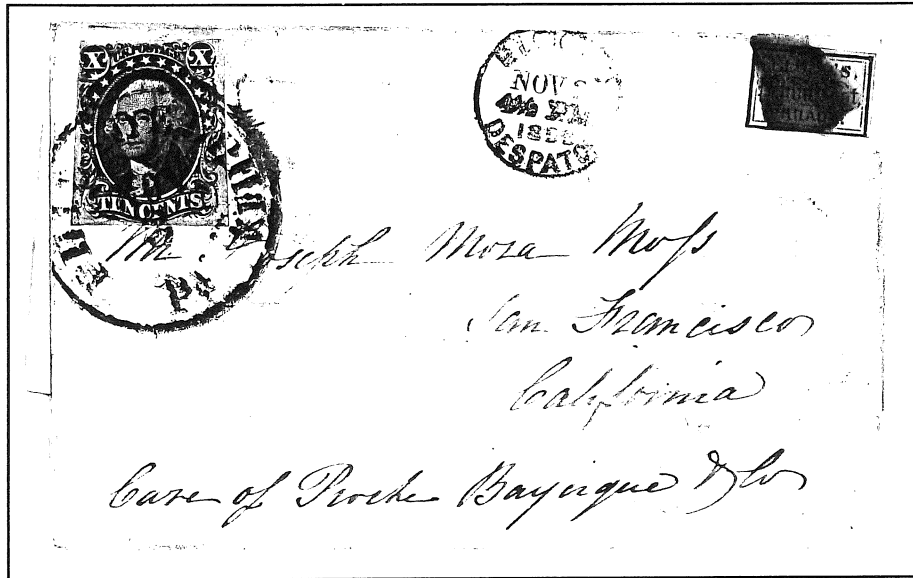 X X
TEN CENTS
NOV
4½ PM
DESPATCH
PHILADA
Mr. Joseph Mora Moss
San Francisco
California
Care of Pioche Bayerque & Co